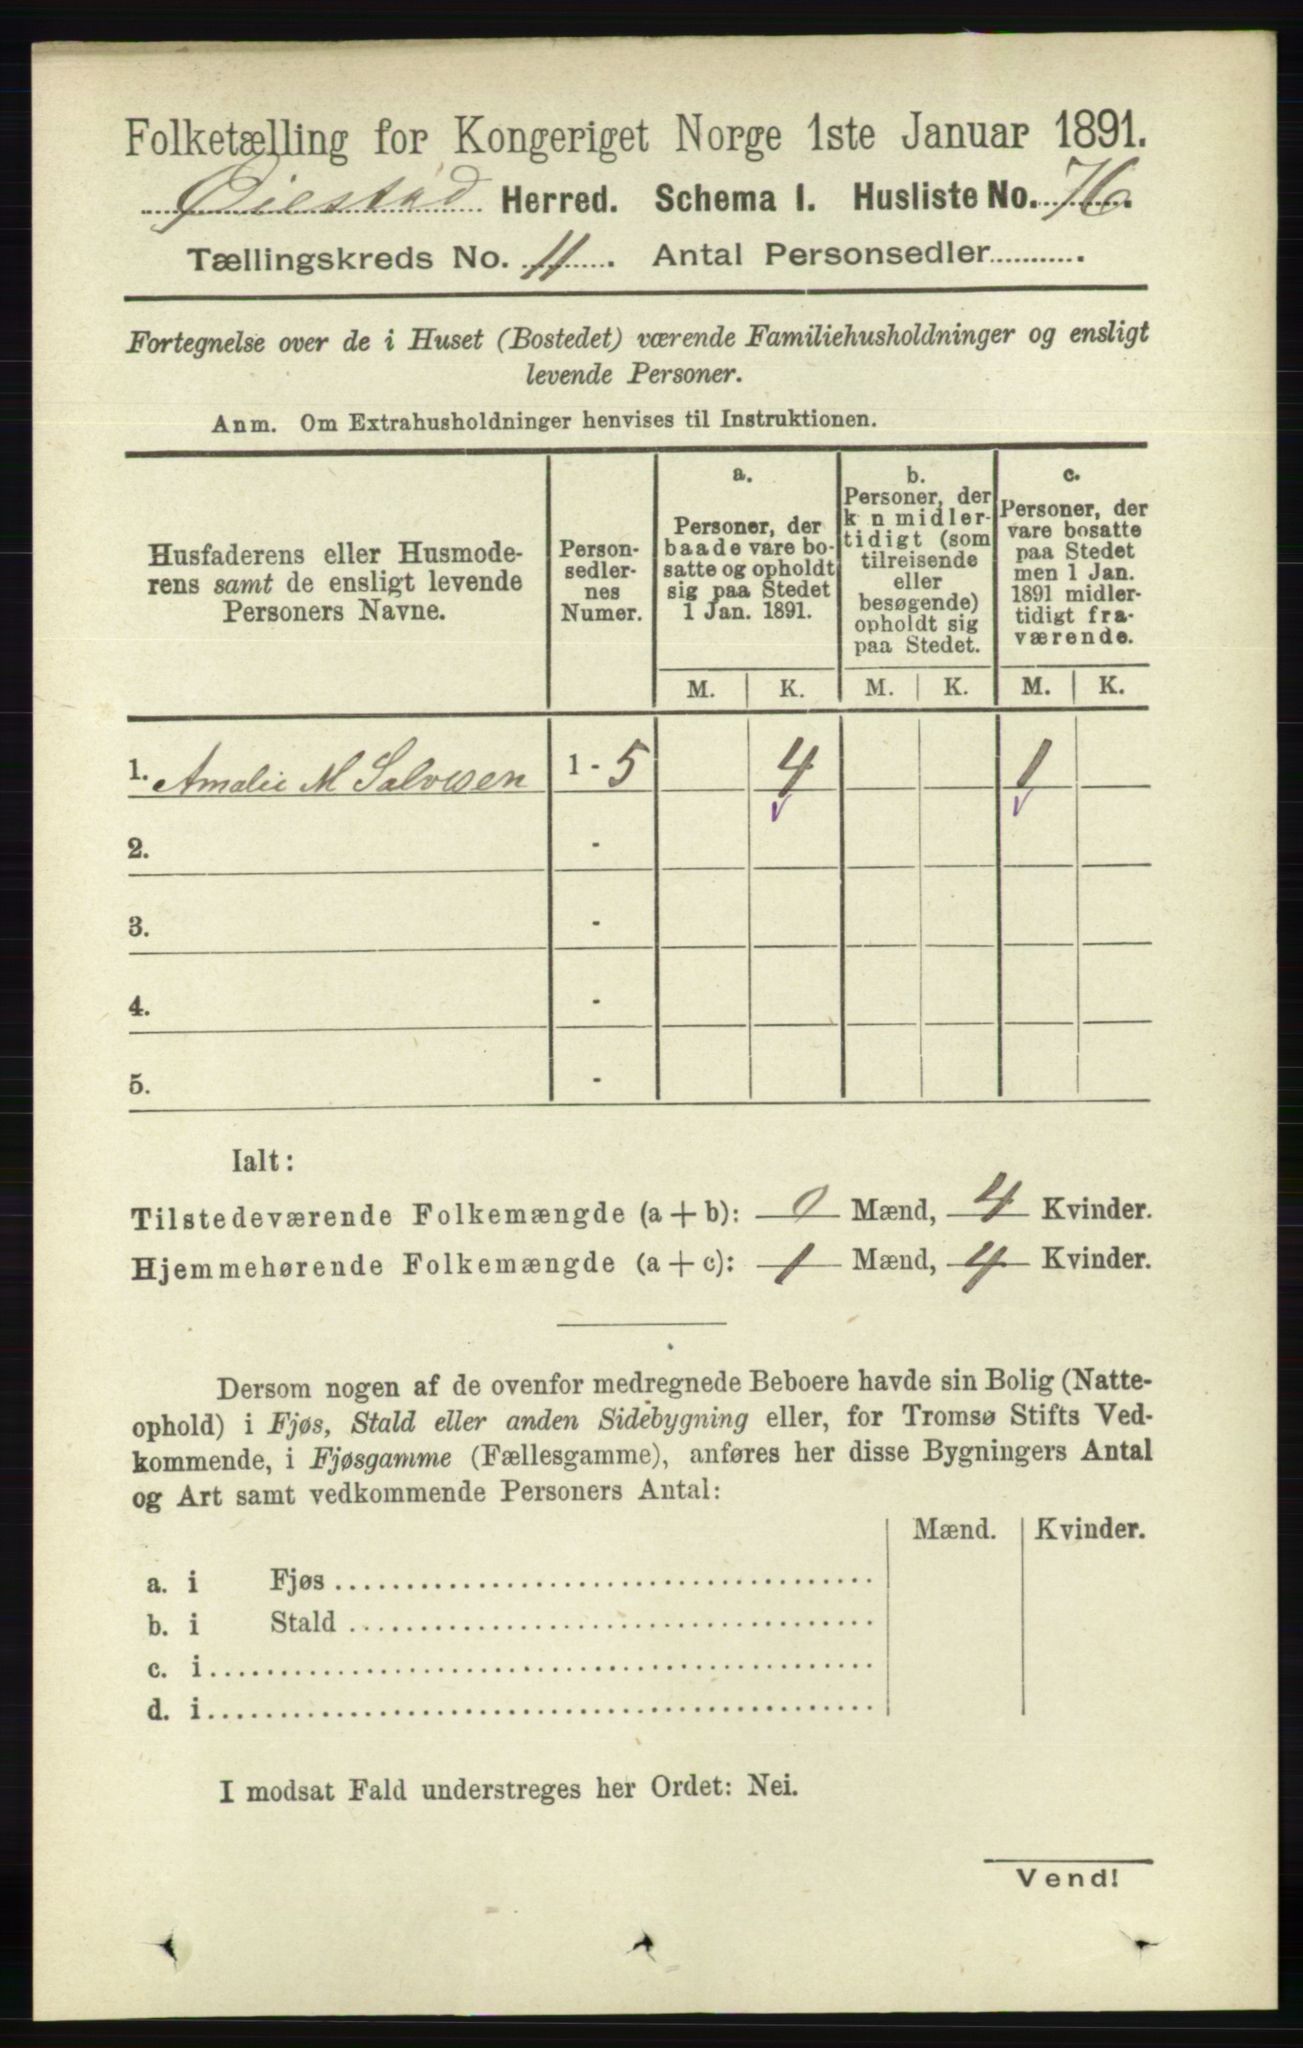 Folketælling for Kongeriget Norge 1ste Januar 1891.
Øiestad Herred. Schema I. Husliste No. 76.
Tællingskreds No. 11. Antal Personsedler............
Fortegnelse over de i Huset (Bostedet) værende Familiehusholdninger og ensligt
levende Personer.
Anm. Om Extrahusholdninger henvises til Instruktionen.
Husfaderens eller Husmode-
rens samt de ensligt levende
Personers Navne.
Person-
sedler-
nes
Numer.
a.
Personer, der
baade vare bo-
satte og opholdt
sig paa Stedet
1 Jan. 1891.
b.
Personer, der
k n midler-
tidigt (som
tilreisende
eller
besøgende)
opholdt sig
paa Stedet.
c.
Personer, der
vare bosatte
paa Stedet
men 1 Jan.
1891 midler-
tidigt fra-
værende.
M. K. M. K. M. K.
1. Amalie M Salvesen 1 - 5 4 1
2. -
3. -
4. -
5. -
Ialt:
Tilstedeværende Folkemængde (a + b): 0 Mænd, 4 Kvinder.
Hjemmehørende Folkemængde (a + c): 1 Mænd, 4 Kvinder.
Dersom nogen af de ovenfor medregnede Beboere havde sin Bolig (Natte-
ophold) i Fjøs, Stald eller anden Sidebygning eller, for Tromsø Stifts Ved-
kommende, i Fjøsgamme (Fællesgamme), anføres her disse Bygningers Antal
og Art samt vedkommende Personers Antal:
Mænd. Kvinder.
a. i Fjøs
b. i Stald
c. i
d. i
I modsat Fald understreges her Ordet: Nei.
Vend!